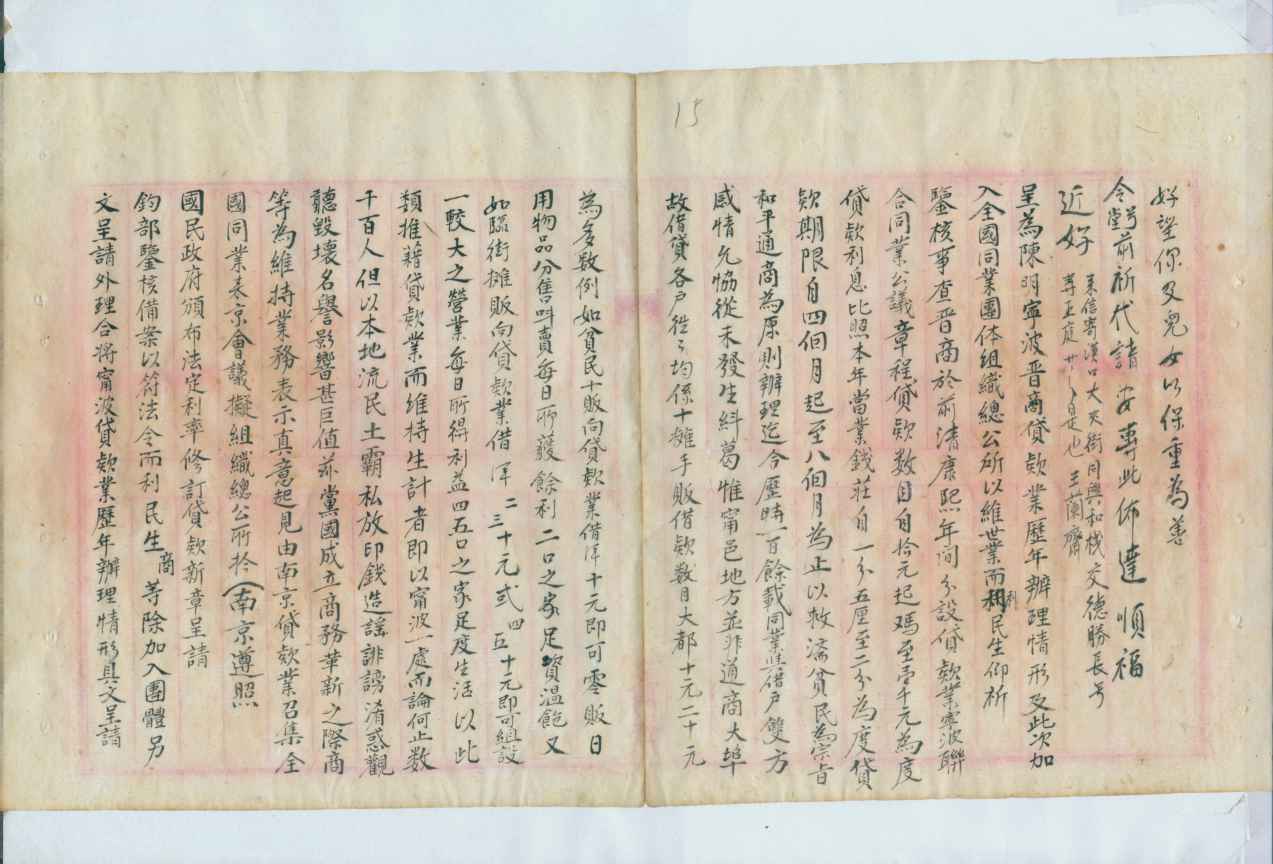 15
好望你及兒女以保重為善
令堂前祈代請安專此佈達順福
近好
來信寄漢口大夾街同興和棧交德勝長号
王蘭齋
呈為陳明寧波晋商貸欵業歷年辦理情形及此次加
入全國同業團体組織總公所以維世業而利民生仰祈
鑒核事查晋商於前清康熙年间分設貸欵業寧波聯
合同業公議章程貸欵数目自拾元起碼至壹千元為度
貸欵利息比照本年當業錢莊自一分五厘至二分為度貸
欵期限自四個月起至八個月為止以救濟貧民為宗旨
和平通商為原則辦理迄今歷時一百餘載同業與借戶雙方
感情允協從未發生糾葛惟甯邑地方並非通商大埠
故借貸各戶徃々均係小摊手販借欵数目大都十元二十元
為多数例如貧民小販向貸欵業借洋十元即可零販日
用物品分售呌賣每日所獲餘利二口之家足資温飽又
如臨街摊販向貸欵業借洋二三十元弍四五十元即可組設
一較大之營業每日所得利益四五口之家足度生活以此
類推藉貸欵業而維持生計者即以甯波一處而論何止数
千百人但以本地流民土霸私放印錢造謡誹謗淆惑觀
聽毀壞名譽影響甚巨值茲黨國成立商務華新之際商
等為維持業務表示真意起見由南京貸欵業召集全
國同業表京會議擬組織總公所於(南京遵照
國民政府頒布法定利率修訂貸欵新章呈請
鈞部鑒核備案以符法令而利民生商等除加入團體另
文呈請外理合將甯波貸欵業歷年辦理情形具文呈請